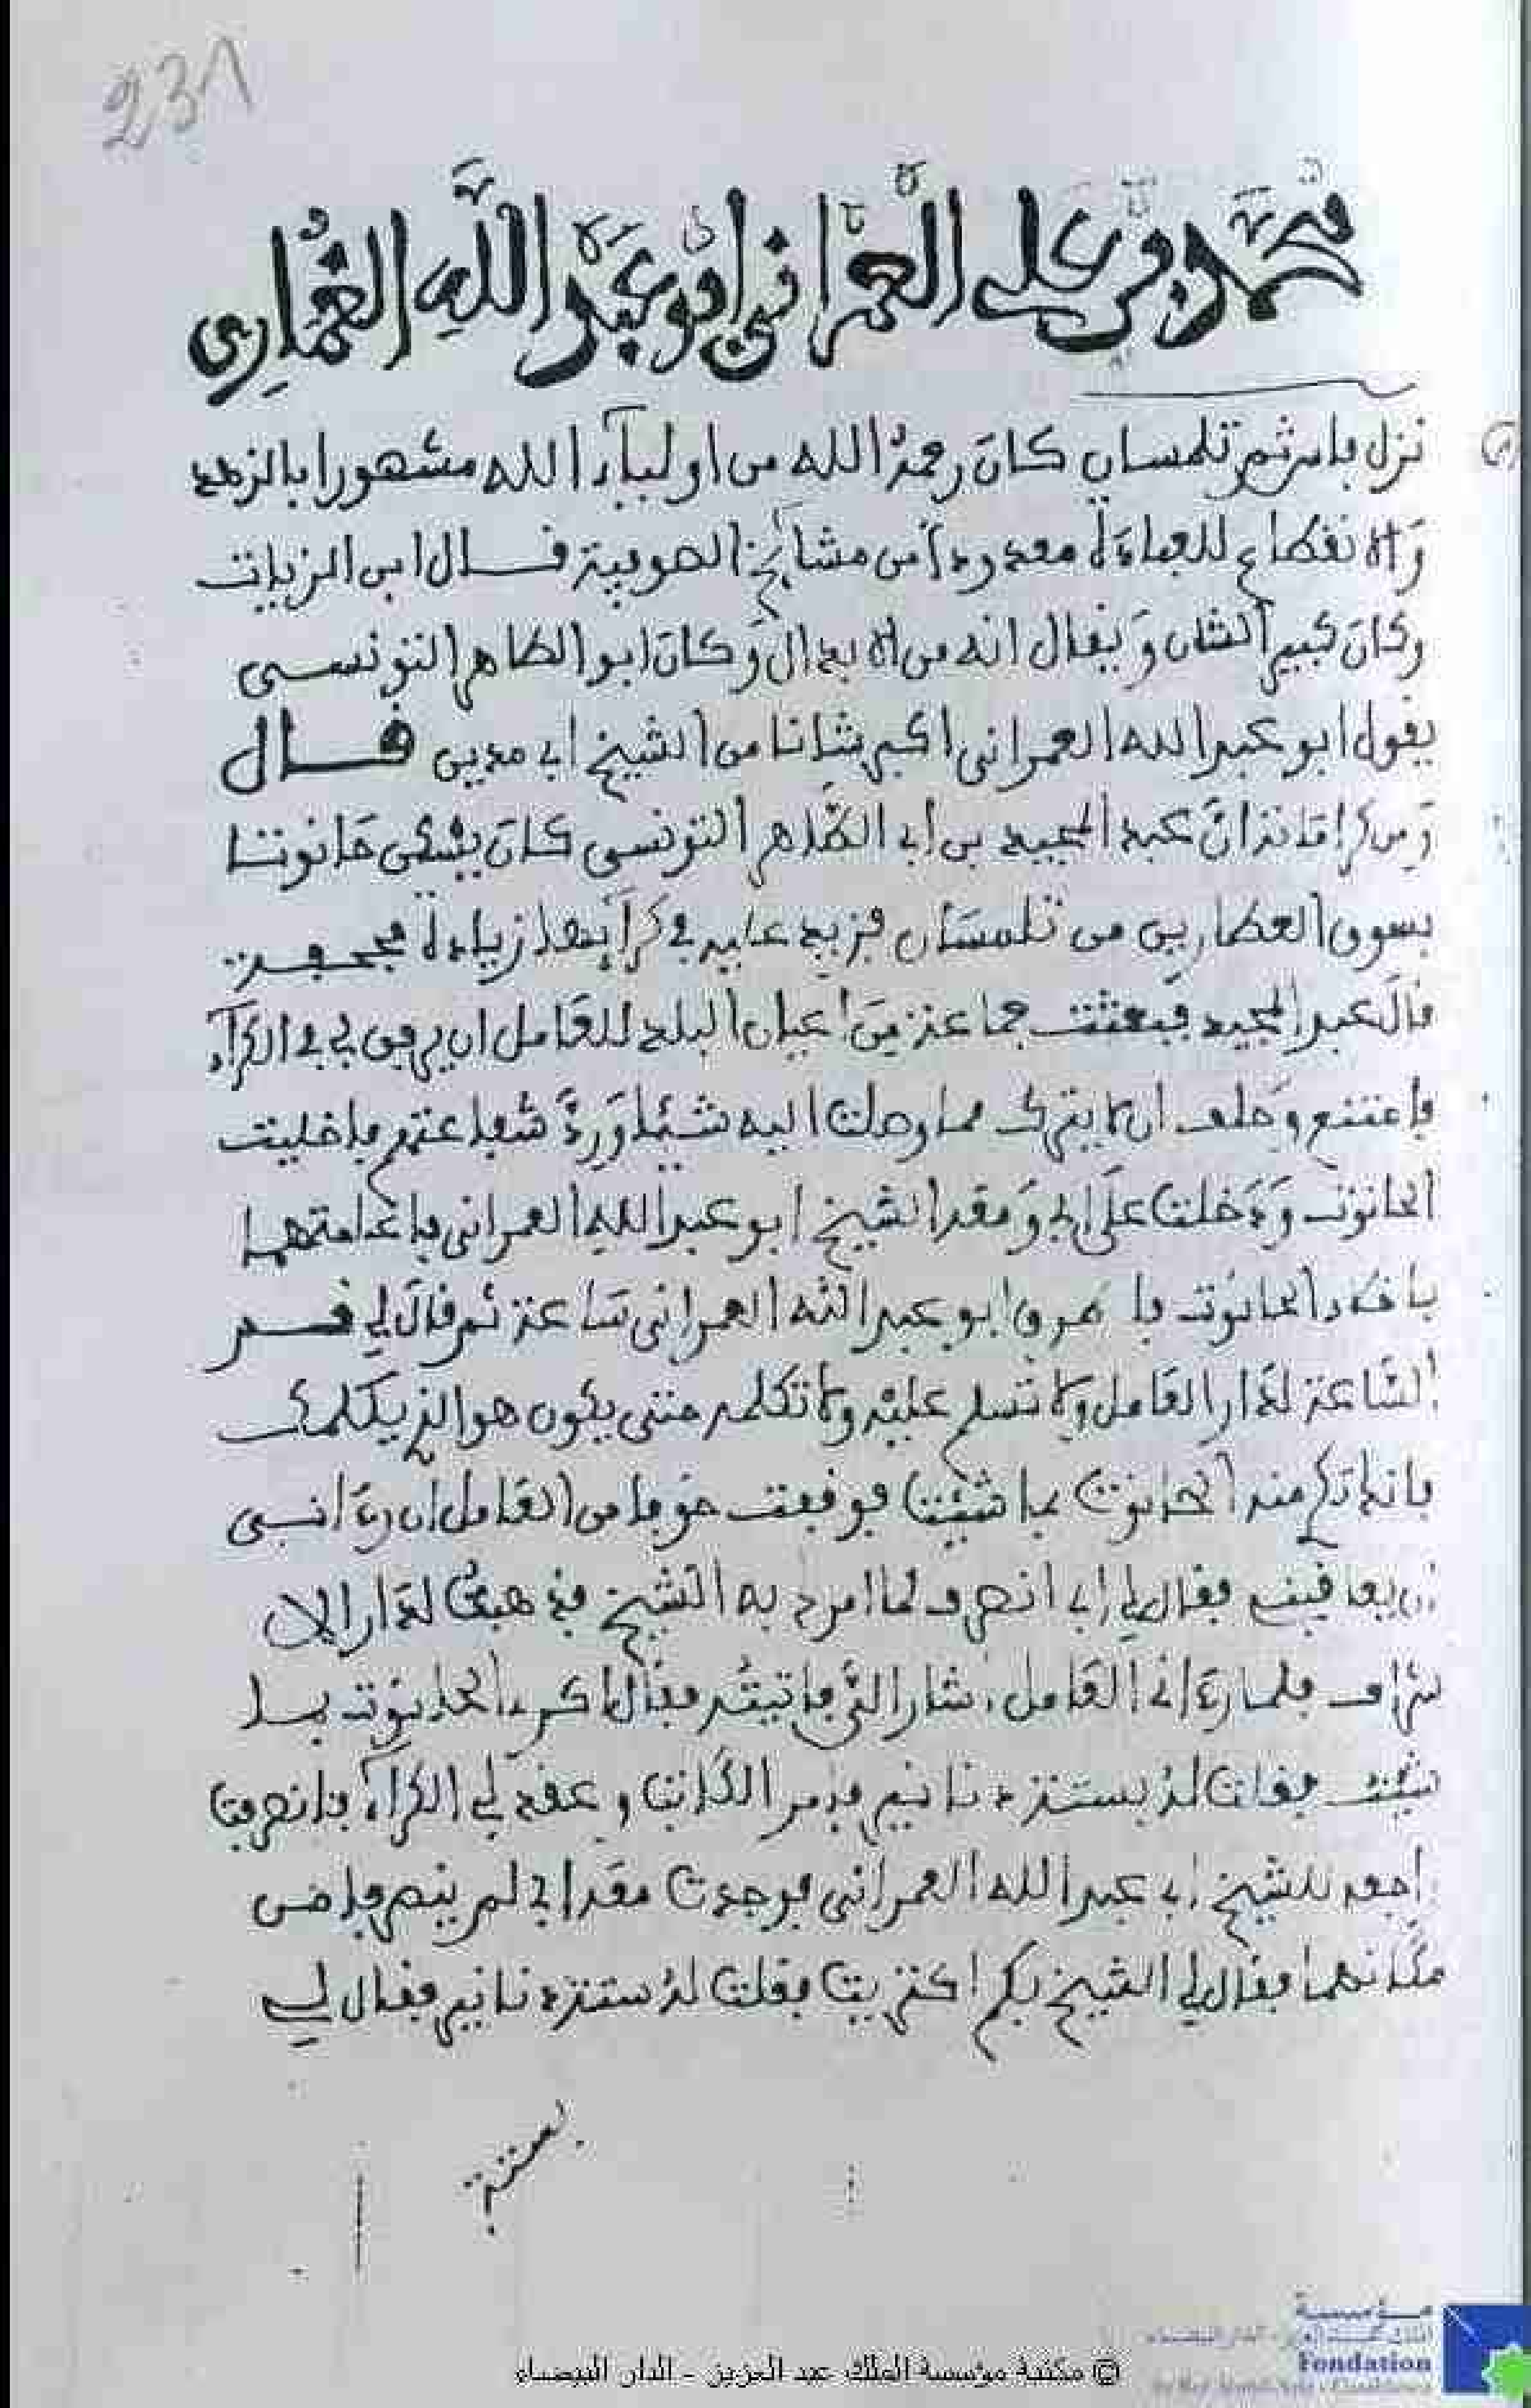 231
محمد بن علي العمراني ابو عبد الله الغماري
نزل بفاس ثم تلمسان كان رحمه الله من اوليآء الله مشهورا بالزهد
والانقطاع للعبادة معدودا من مشائخ الصوفية قال ابن الزيات
وكان كبير الشان ويقال انه من الابدال وكان ابو الطاهر التونسي
يقول ابو عبد الله العمراني اكبر شانا من الشيخ ابي مدين قال
ومن كراماته ان عبد المجيد بن ابي الطاهر التونسي كان يسكن حانوتا
بسوق العطارين من تلمسان فزيد عليه في كرآيها زيادة مجحفة
قال عبد المجيد فبعثت جماعة من اعيان البلد للعامل ان يرفق بي في الكرآء
فامتنع وحلف ان لا يترك مما وصلت اليه شيئا ورد شفاعتهم فاخليت
الحانوت ودخلت على ابي ومعه الشيخ ابو عبد الله العمراني فاعلمتهما
باخلاء الحانوت فاطرق ابو عبد الله العمراني ساعة ثم قال لي قم
الساعة لدار العامل ولا تسلم عليه ولا تكلمه حتى يكون هو الذي يكلمك
فانك تكري منه الحانوت بما شئت فوقفت خوفا من العامل ان رءاني
ان يعاقبني فقال لي ابي انصرف لما امرك به الشيخ فذهبت لدار الا
شراف فلما رءاني العامل اشار الي فاتيته فقال اكر الحانوت بما
شئت فقلت له بستة دنانير فامر الكاتب وعقد لي الكرآء فانصرفت
اجعه للشيخ ابي عبد الله العمراني فوجدت معه ابي لم ينصرفا من
مكانهما فقال لي الشيخ بكم اكتريت فقلت له ستة دنانير فقال لي
بستة
© مكتبة مؤسسة الملك عبد العزيز - الدار البيضاء
مؤسسة
Fondation